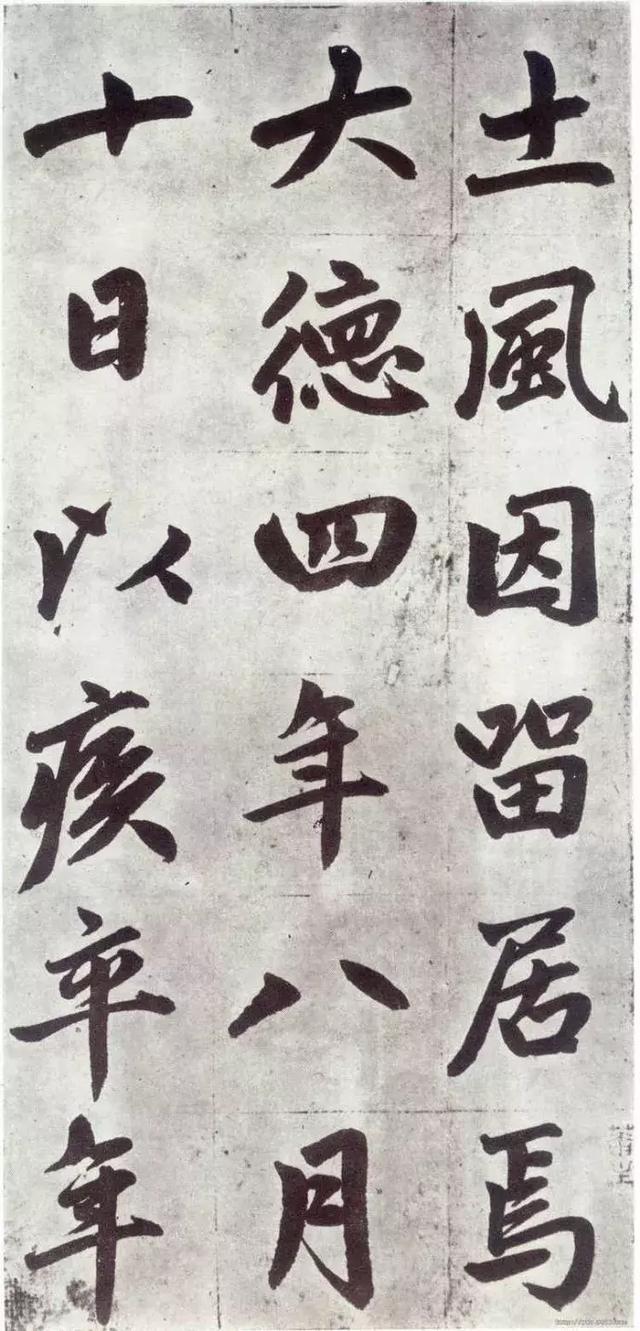 土風因留居焉
大徳四年八月
十日以疾卒年